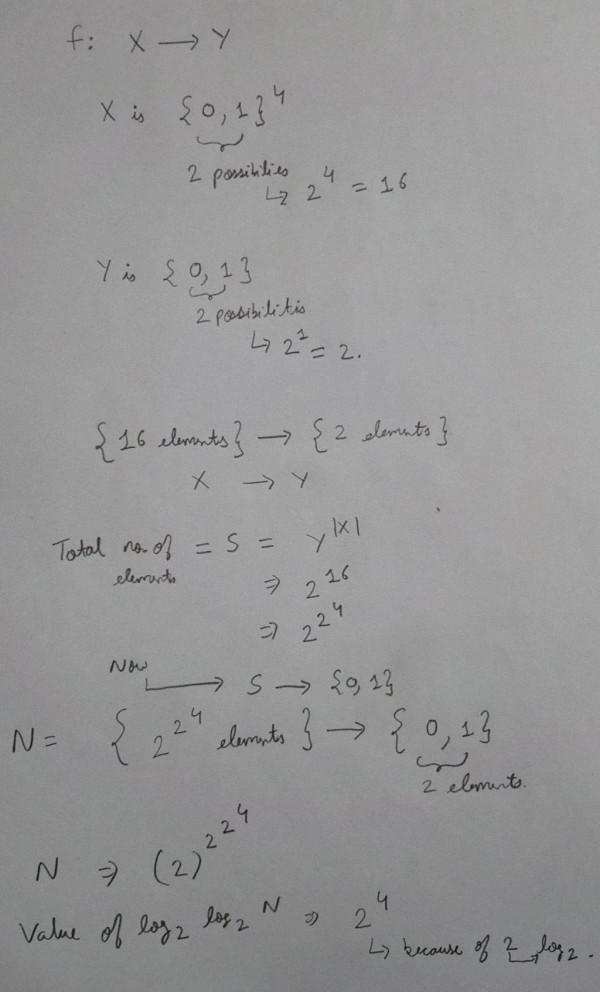 f: X → Y
X is {0, 1}⁴
2 possibilies
↳ 2⁴ = 16
Y is {0, 1}
2 possibilitis
↳ 2¹ = 2.
{16 elements} → {2 elements}
X → Y
Total no. of elements = S = Y^|X|
⇒ 2^16
⇒ 2^2^4
Now → S → {0, 1}
N = {2^2^4 elements} → {0, 1}
2 elements.
N ⇒ (2)^2^2^4
Value of log₂ log₂ N ⇒ 2⁴
↳ because of 2 log₂.